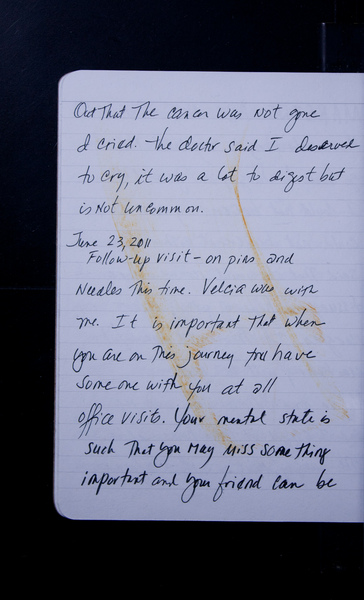 Out That The cancer was Not gone
I cried. The doctor said I deserved
to cry, it was a lot to digest but
is Not uncommon.
June 23, 2011
Follow-up visit - on pins and
Needles This time. Velcia was with
me. It is important That when
you are on This journey you have
some one with you at all
office visits. Your mental state is
such That you may miss some thing
important and your friend can be